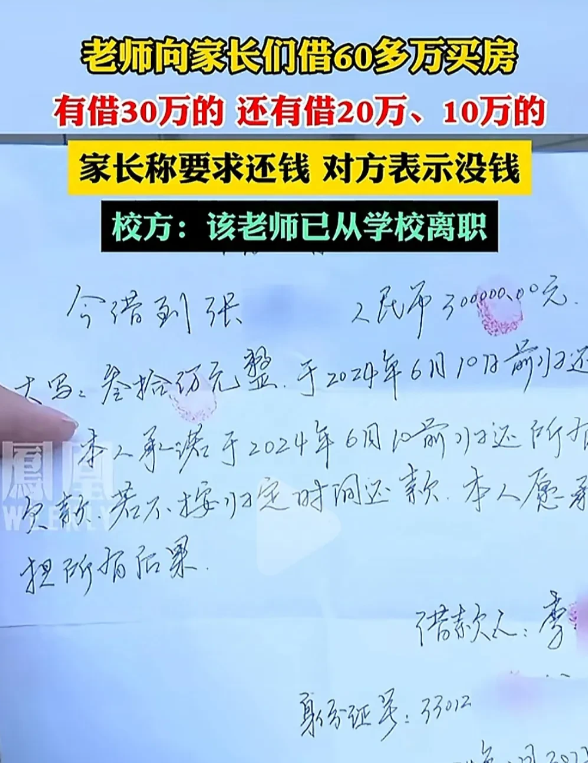 老师向家长们借60多万买房
有借30万的 还有借20万、10万的
家长称要求还钱 对方表示没钱
校方：该老师已从学校离职
今借到张 人民币300000.00元
大写：叁拾万元整.于2024年6月10日前归还
本人承诺于2024年6月10前归还所有
欠款.若不按归定时间还款.本人愿承
担所有后果.
凤凰
WEEKLY
借款人：李
身份证号：33012